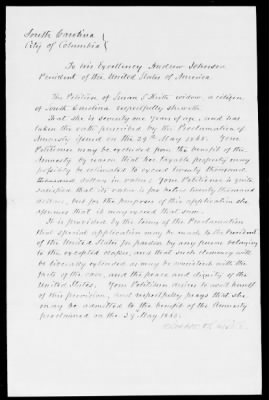 South Carolina
City of Columbia
To his Excellency Andrew Johnson
President of the United States of America.
The Petition of Susan S. widow, a citizen
of South Carolina respectfully sheweth
That she is seventy one years of age, and has
taken the oath prescribed by the Proclamation of
Amnesty issued on the 29th May 1865. Your
Petitioner may be excluded from the benefit of the
Amnesty by reason that her taxable property may
possibly be estimated to exceed twenty thousand
thousand dollars in value. Your Petitioner is quite
satisfied that its value is far below twenty thousand
dollars, but for the purposes of this application she
assumes that it may exceed that sum.
It is provided by the terms of the Proclamation
that special application may be made to the President
of the United States for pardon by any person belonging
to the excepted classes, and that such clemency will
be liberally extended as may be consistent with the
facts of the case, and the peace and dignity of the
United States. Your Petitioner desires to avail herself
of this provision, and respectfully prays that she
may be admitted to the benefit of the Amnesty
proclaimed on the 29th May 1865.